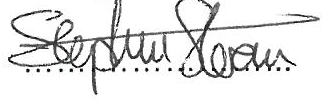 Stephen Sloan